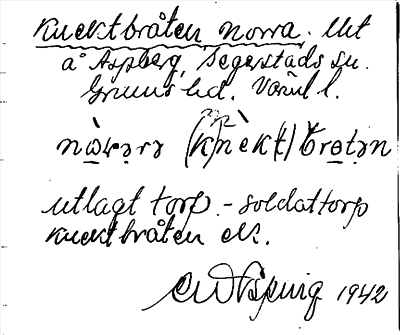 Knektbråten, norra. Utt
å Aspberg, Segerstads sn.
Grums hd. Värml l.
nòwrərə (k)nèk(t)brɷtən
utlagt torp. - soldattorp
Knektbråten el.
1942